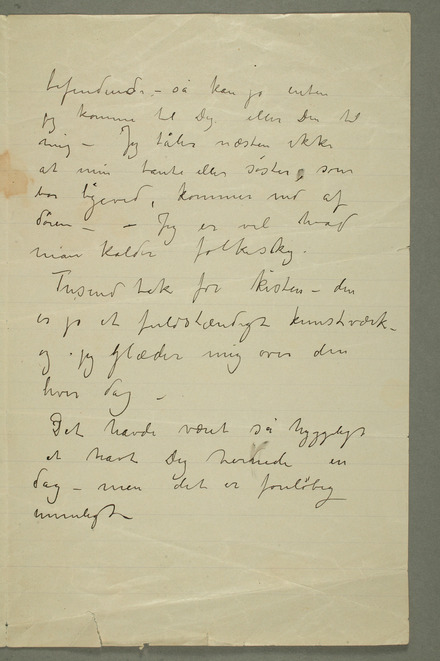 befindende – så kan jo enten
jeg komme til Dig eller Du til
mig – Jeg tåler næsten ikke
at min tante eller søster, som
bor ligeved, kommer ind af
døren – – Jeg er vel hvad
man kalder folkesky.
Tusind tak for kisten – den
er jo et fuldstændigt kunstværk –
og jeg glæder mig over den
hver dag –
Det havde været så hyggeligt
at havt Dig hernede en
dag – men det er foreløbig
umuligt